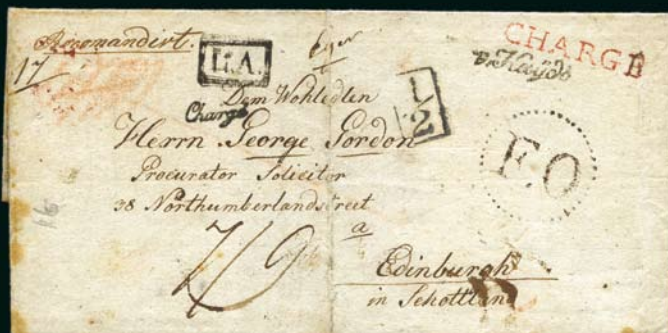 Recomandirt.
CHARGÉ
17
L.A.
Chargé
1/2
Dem Wohledlen
Herrn George Gordon
F.O
Procurator Solicitor
38 Northumberlandstreet
a
16
Edinburgh
in Schottland